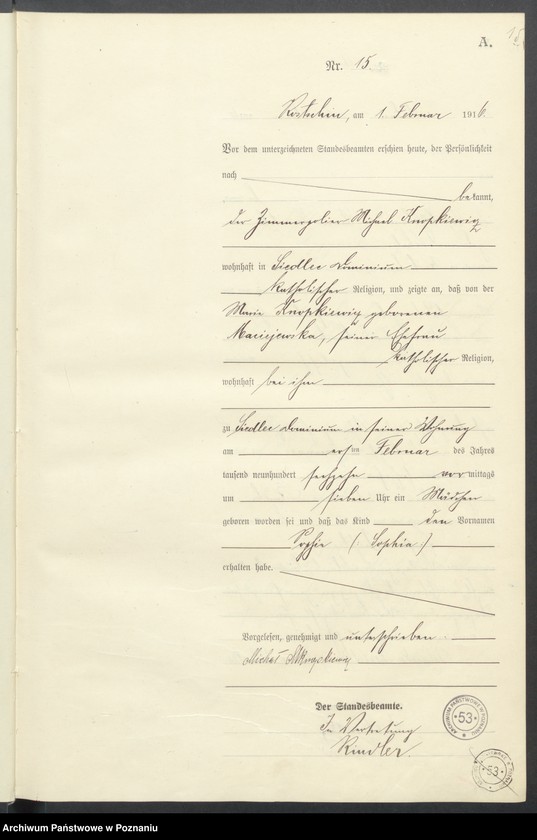 A.
Nr. 15.
Kostschin, am 1. Februar 1916.
Vor dem unterzeichneten Standesbeamten erschien heute, der Persönlichkeit
nach
bekannt,
der Zimmerpolier Michael Knopkiewiz
wohnhaft in Siedlec Dominium
katholischer Religion, und zeigte an, daß von der
Marie Knopkiewiz geborenen
Maciejewska, seiner Ehefrau
katholischer Religion,
wohnhaft bei ihm
zu Siedlec Dominium in seiner Wohnung
am ersten Februar des Jahres
tausend neunhundert sechzehn vormittags
um sieben Uhr ein Mädchen
geboren worden sei und daß das Kind den Vornamen
Sophie (: Sophia :)
erhalten habe.
Vorgelesen, genehmigt und unterschrieben
Michał
Der Standesbeamte.
In Vertretung
Rindler.
ARCHIWUM PAŃSTWOWE W POZNANIU
53
53
Archiwum Państwowe w Poznaniu